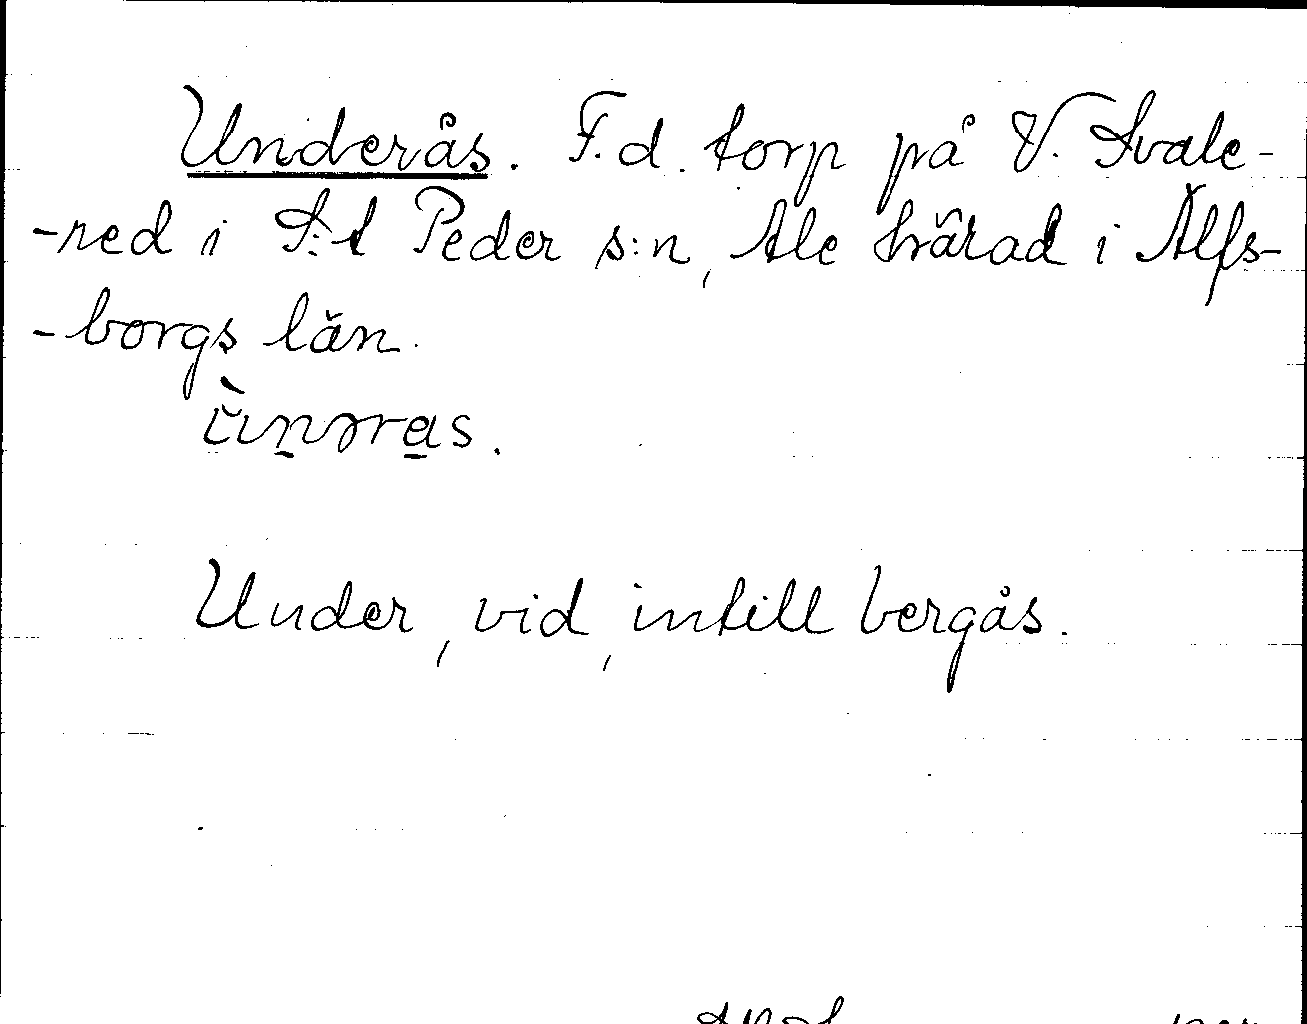 Underås. F.d. torp på V. Svale-
-red i S:t Peder s:n, Ale härad i Älfs-
-borgs län.
Under, vid, intill bergås.